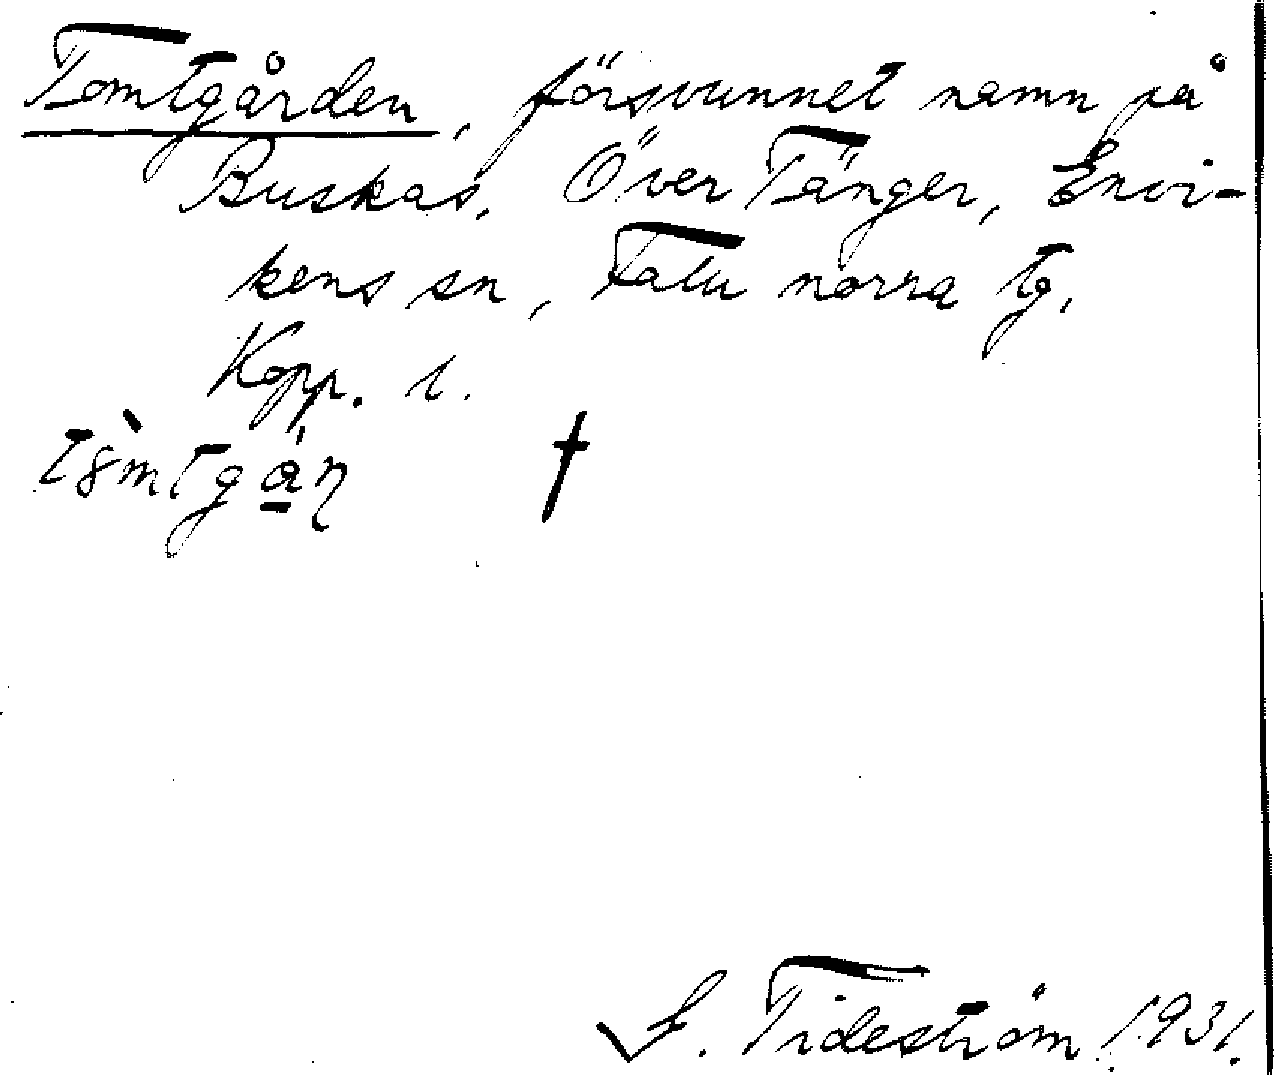 Tomtgården, försvunnet namn på
Buskas. Över Tänger, Envi-
kens sn, Falu norra tg.
Kopp. l.
†
S. Tideström 1931.